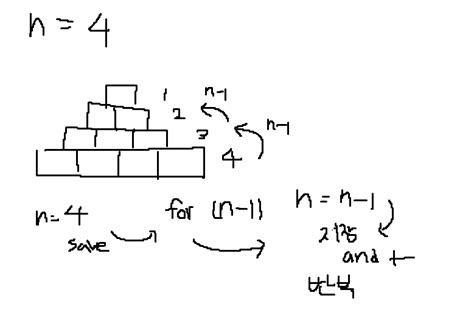 n = 4
1
n-1
2
n-1
3
4
n=4
for (n-1)
n = n-1
save
and +
반복